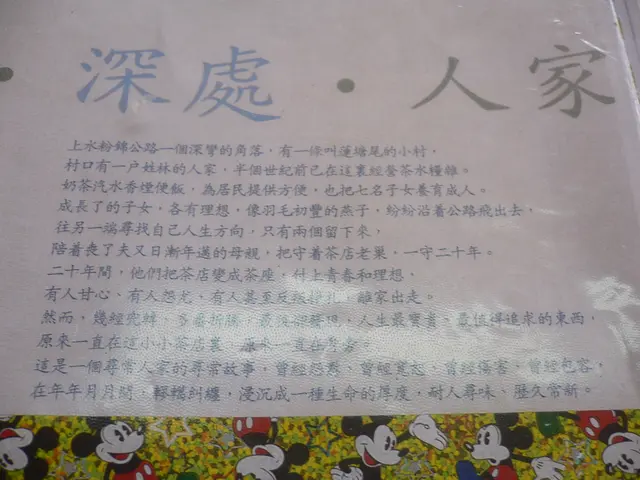 深處·人家
上水粉錦公路一個深彎的角落，有一條叫蓮塘尾的小村，
村口有一户姓林的人家，半個世紀前已在這裏經營茶水糧雜。
奶茶汽水香煙便飯，為居民提供方便，也把七名子女養育成人。
成長了的子女，各有理想，像羽毛初豐的燕子，紛紛沿着公路飛出去，
往另一端尋找自己人生方向，只有兩個留下來，
陪着喪了夫又日漸年邁的母親，把守着茶店老巢，一守二十年。
二十年間，他們把茶店變成茶座，付上青春和理想，
有人甘心、有人怨尤、有人甚至反叛掙扎，離家出走。
然而，幾經兜轉，多番折騰，最後卻發現，人生最寶貴、最值得追求的東西，
原來一直在這小小茶店裏，原來一直在身旁。
這是一個尋常人家的尋常故事，曾經怨懟，曾經寬恕，曾經傷害，曾經包容；
在年年月月間，轇轕糾纏，浸沉成一種生命的厚度，耐人尋味、歷久常新。